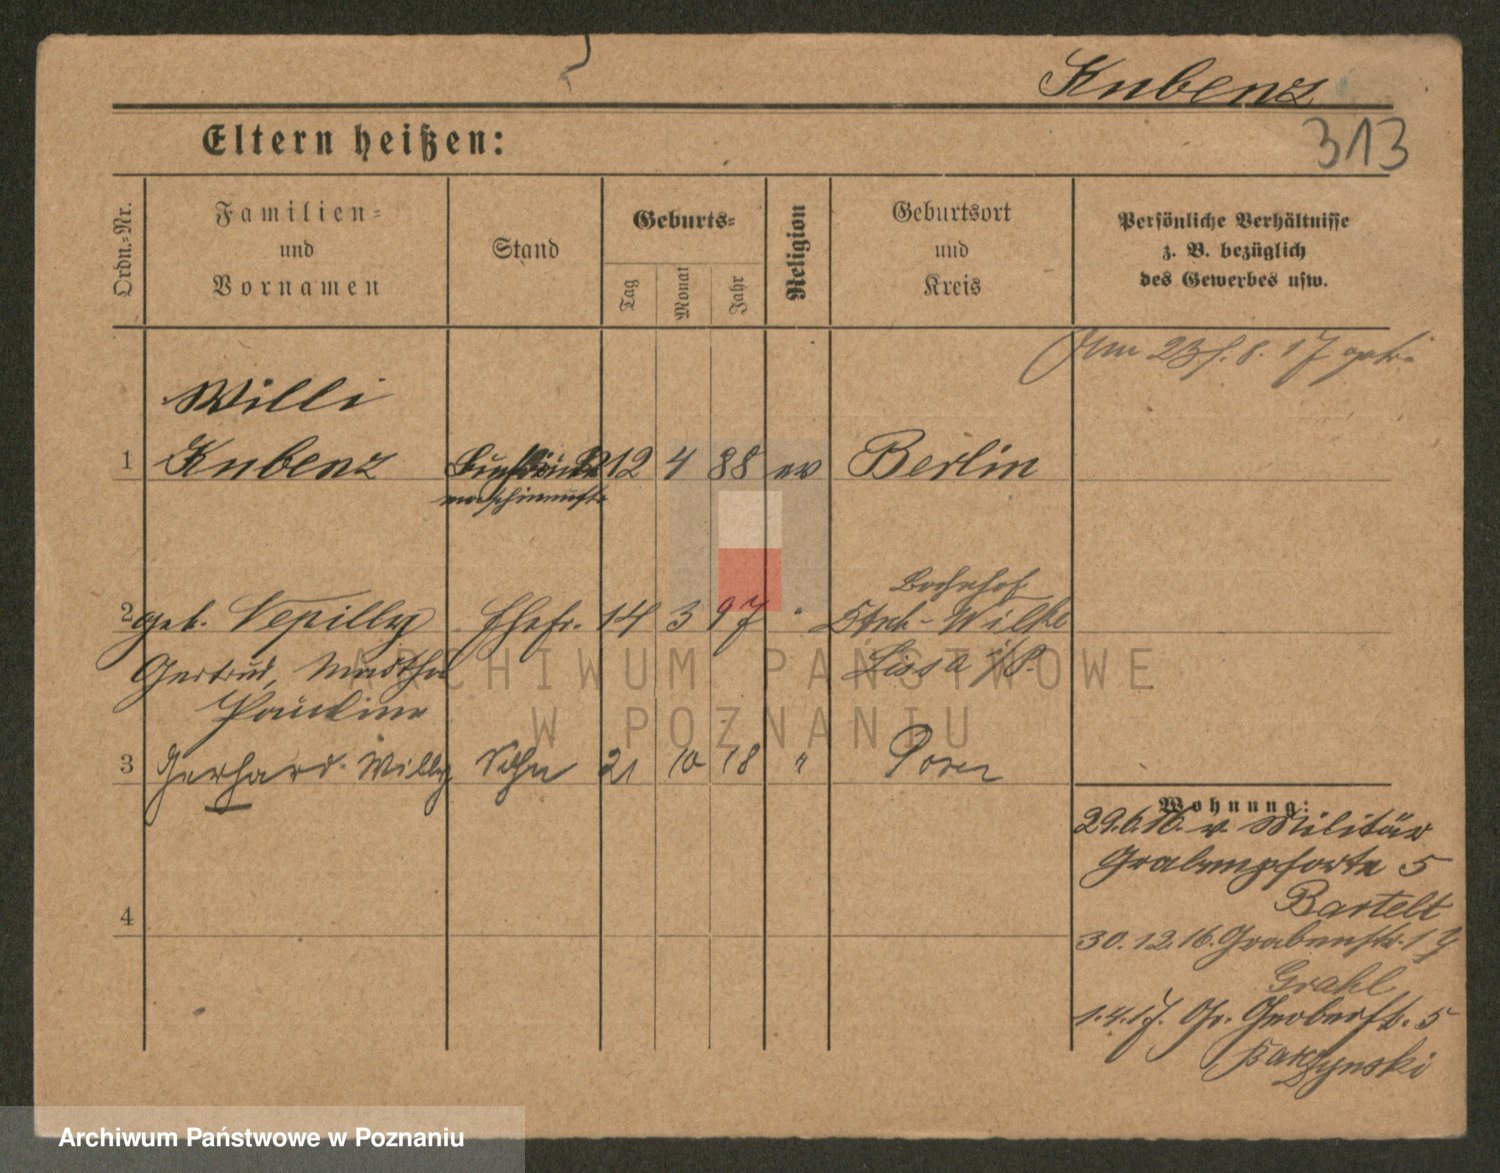 Kubenz
313
Eltern heißen:
Ordn.-Nr.
Familien-
und
Vornamen
Stand
Geburts-
Tag
Monat
Jahr
Religion
Geburtsort
und
Kreis
Persönliche Verhältnisse
z. B. bezüglich
des Gewerbes usw.
Am 23/. 8. 17 getr.
Willi
1 Kubenz 12 4 88 ev Berlin
Bahnhof
2 geb. Ehefr. 14 3 97 "
Gertrud, Martha Lissa i/P.
Pauline
3 Gerhard Willy Sohn 21 10 18 " Posen
4
Wohnung:
29.6.16. v. Militär
Grabenpforte 5
Bartelt
30.12.16. Grabenstr. 17
Grahl
1.4.17. Gr. Gerberstr. 5
Barzynski
ARCHIWUM PAŃSTWOWE
W POZNANIU
Archiwum Państwowe w Poznaniu